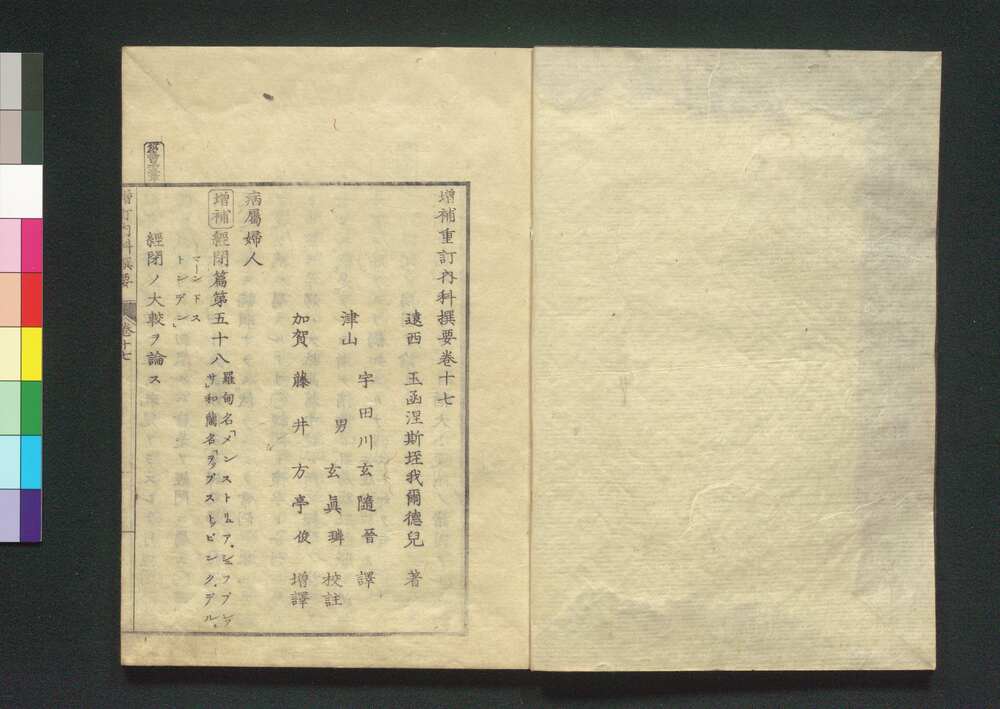 增補重訂內科撰要卷十七
遠西 玉函涅斯垤我爾德兒 著
津山 宇田川玄隨晉 譯
男 玄眞璘 校註
加賀 藤井方亭俊 增譯
病屬婦人
增補 經閉篇第五十八 羅甸名「メンストリュア、シュップレッ
サ」和蘭名「ヲップストッピング、デル、
マーンドス
トンデン」
經閉ノ大較ヲ論ス
增訂內科撰要 卷十七